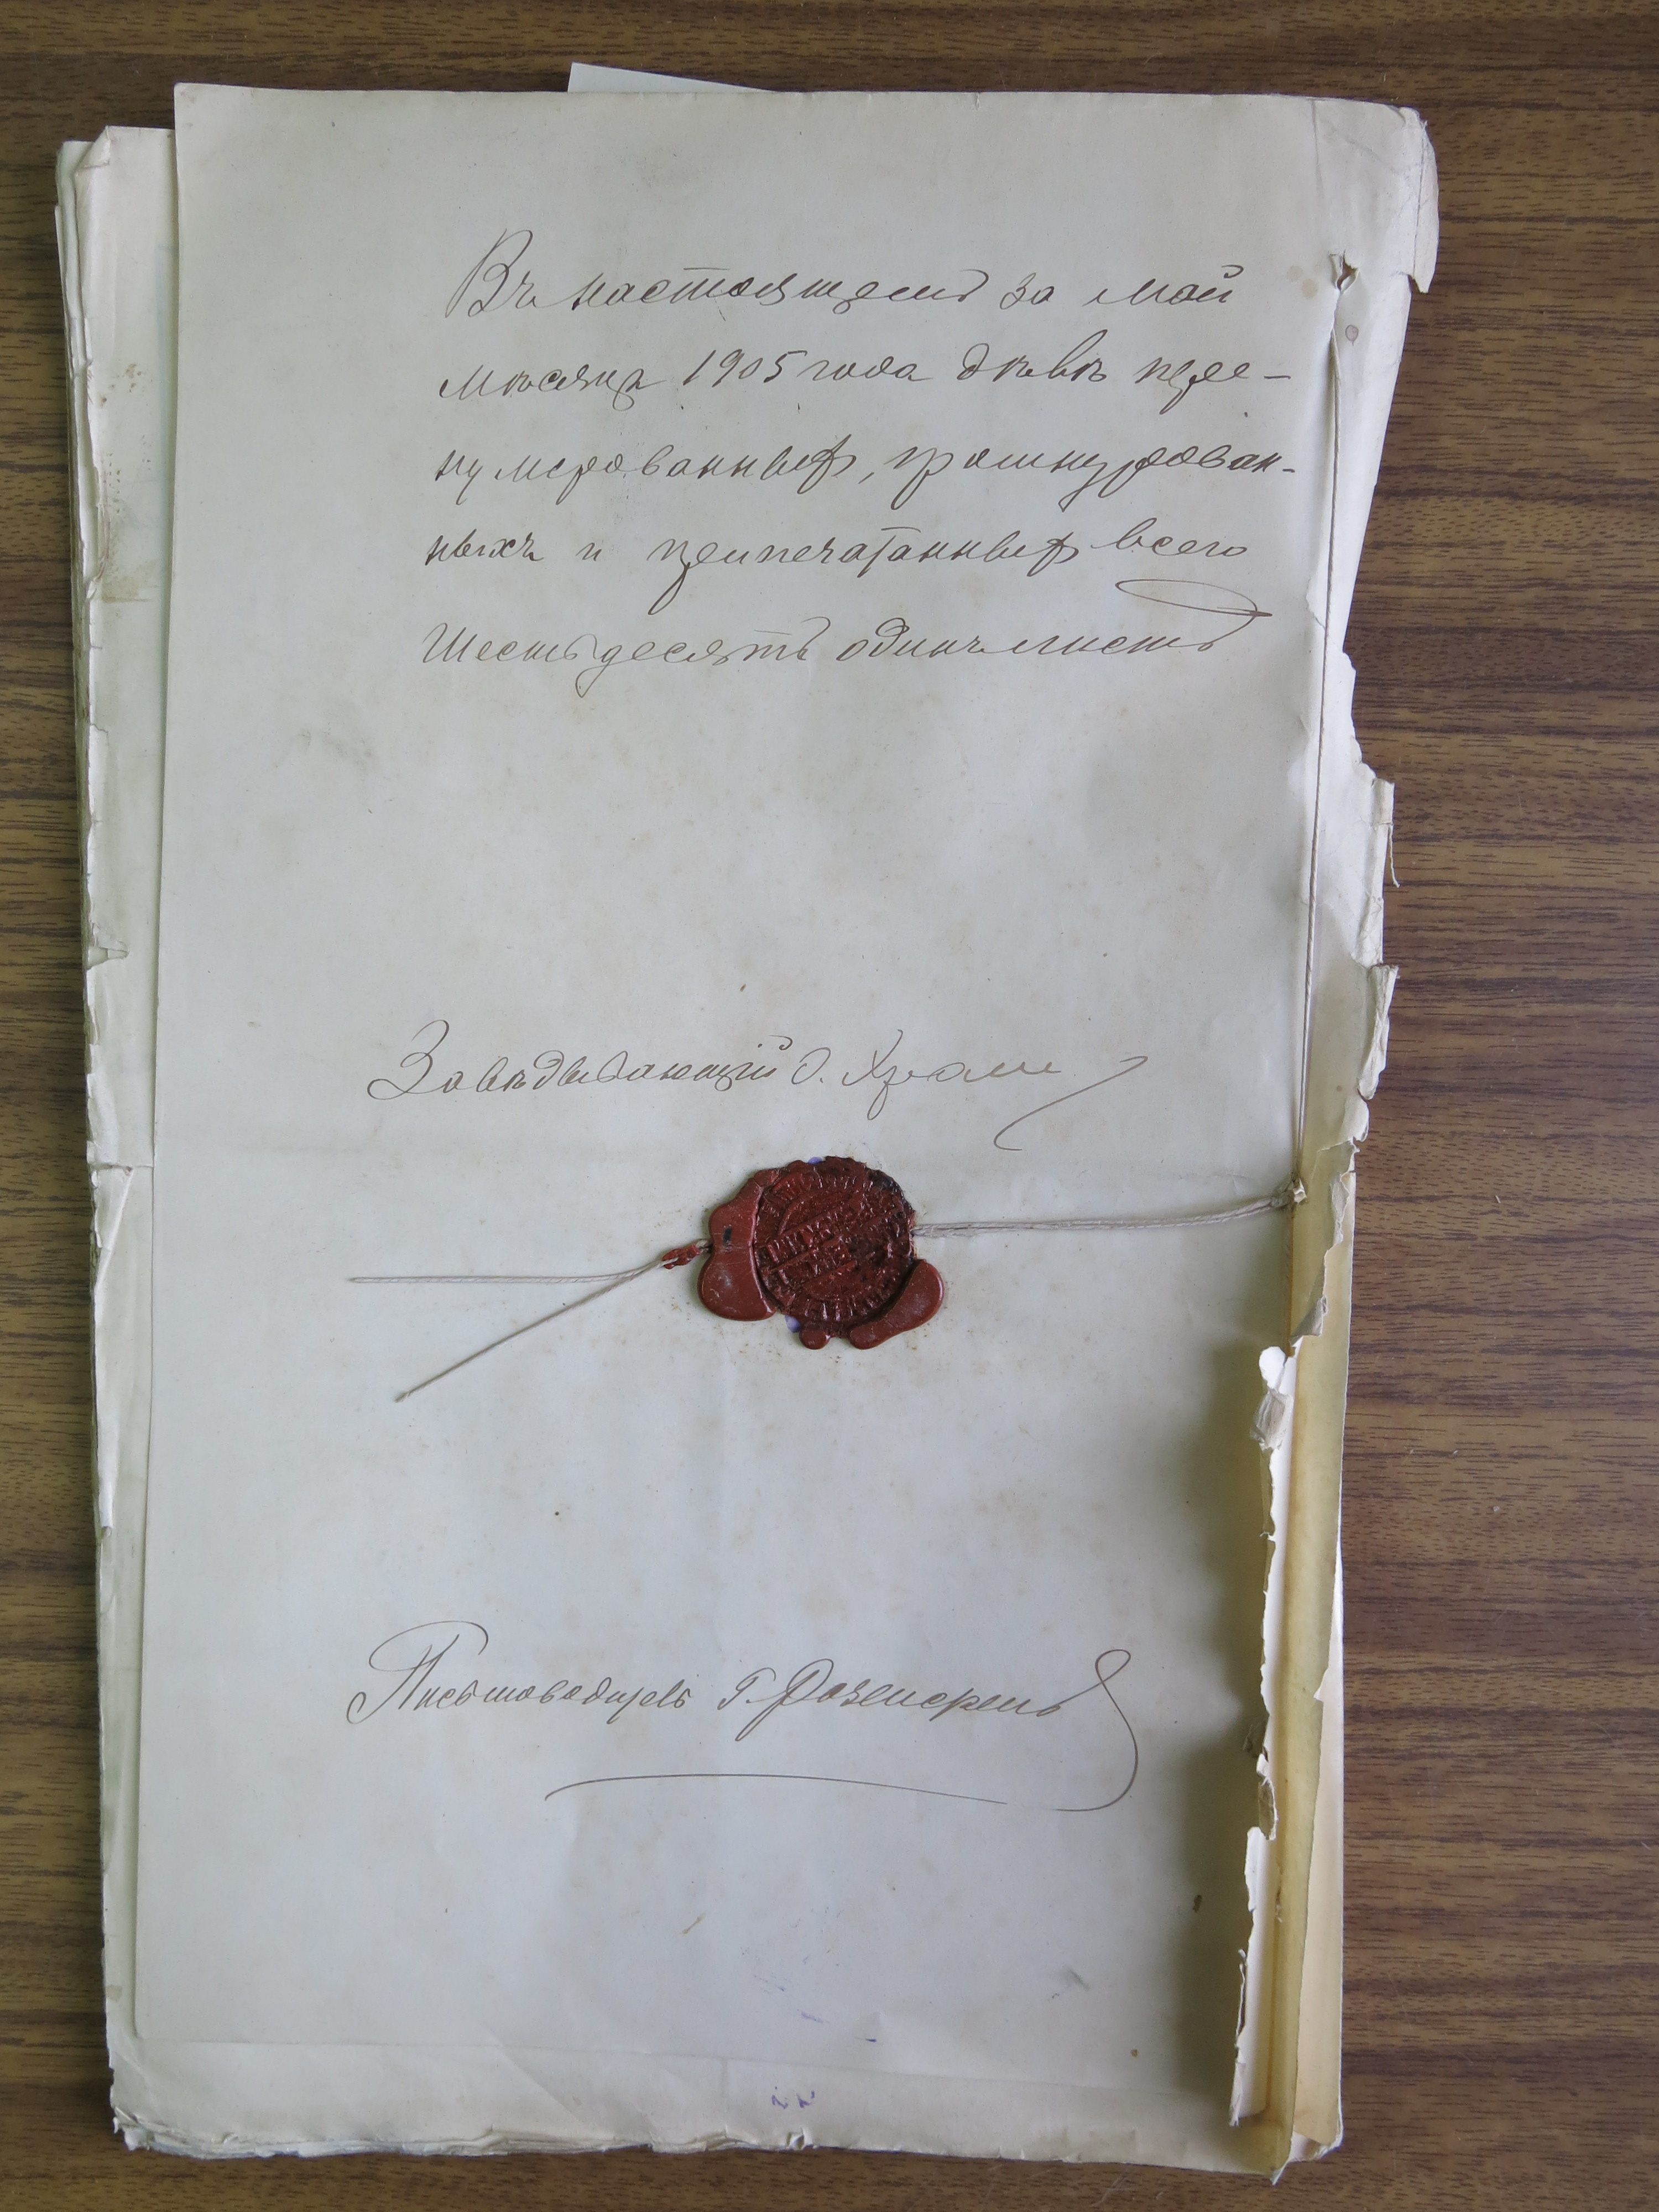 Въ настоящемъ за май
мѣсяцъ 1905 года дѣлѣ пре-
нумерованныхъ, прошнурован-
ныхъ и припечатанныхъ всего
Шестьдесятъ одинъ листъ
Завѣдывающій О. Храм
Письмоводитель Г. Розенкренъ